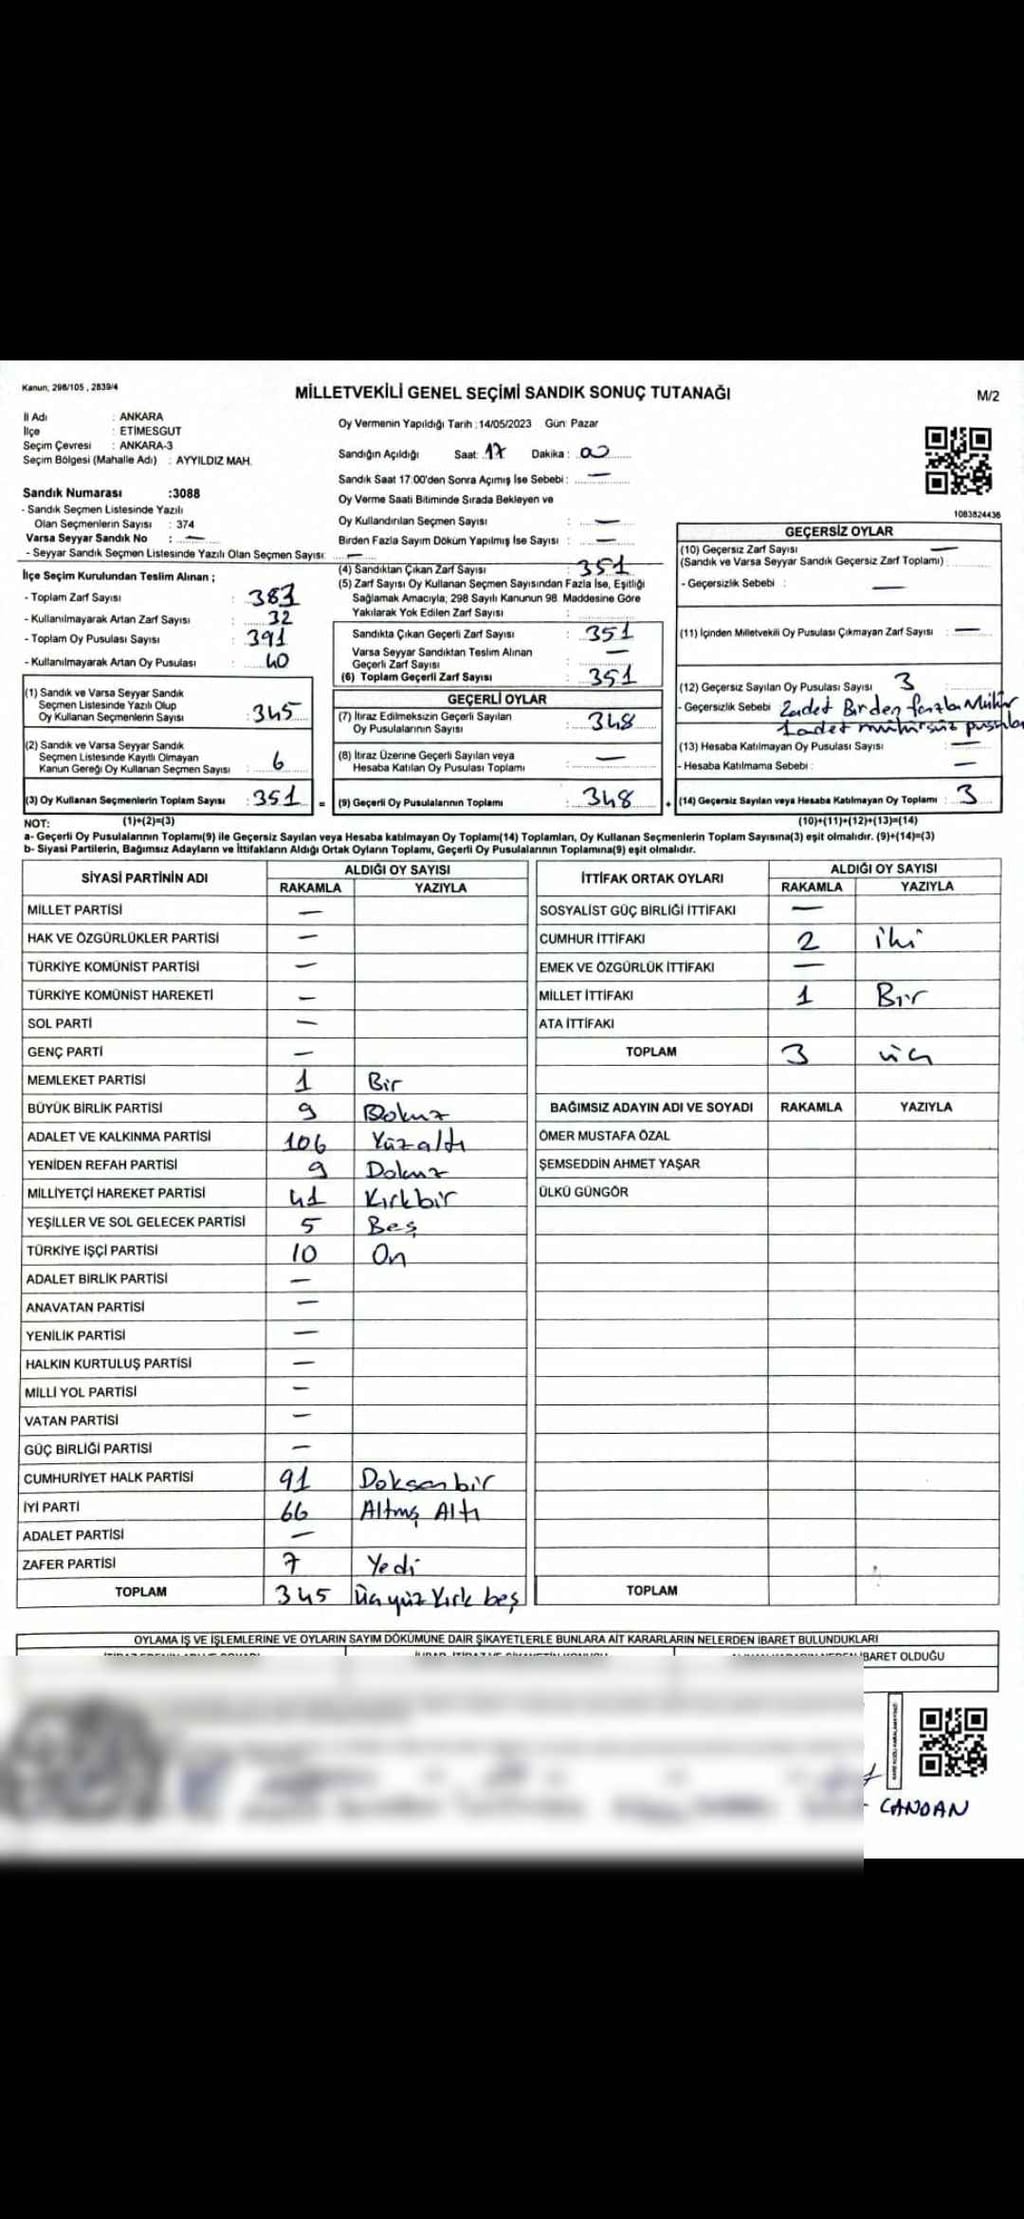 Kanun; 298/105 , 2839/4
MİLLETVEKİLİ GENEL SEÇİMİ SANDIK SONUÇ TUTANAĞI
M/2
İl Adı : ANKARA
İlçe : ETİMESGUT
Seçim Çevresi : ANKARA-3
Seçim Bölgesi (Mahalle Adı) : AYYILDIZ MAH.
Sandık Numarası :3088
- Sandık Seçmen Listesinde Yazılı
Olan Seçmenlerin Sayısı : 374
Varsa Seyyar Sandık No : —
- Seyyar Sandık Seçmen Listesinde Yazılı Olan Seçmen Sayısı: —
İlçe Seçim Kurulundan Teslim Alınan ;
- Toplam Zarf Sayısı : 383
- Kullanılmayarak Artan Zarf Sayısı : 32
- Toplam Oy Pusulası Sayısı : 391
- Kullanılmayarak Artan Oy Pusulası : 40
(1) Sandık ve Varsa Seyyar Sandık
Seçmen Listesinde Yazılı Olup
Oy Kullanan Seçmenlerin Sayısı : 345
(2) Sandık ve Varsa Seyyar Sandık
Seçmen Listesinde Kayıtlı Olmayan
Kanun Gereği Oy Kullanan Seçmen Sayısı : 6
(3) Oy Kullanan Seçmenlerin Toplam Sayısı : 351 =
Oy Vermenin Yapıldığı Tarih :14/05/2023 Gün: Pazar
Sandığın Açıldığı Saat: 17 Dakika : 00
Sandık Saat 17:00'den Sonra Açımış İse Sebebi : —
Oy Verme Saati Bitiminde Sırada Bekleyen ve
Oy Kullandırılan Seçmen Sayısı : —
Birden Fazla Sayım Döküm Yapılmış İse Sayısı : —
(4) Sandıktan Çıkan Zarf Sayısı : 351
(5) Zarf Sayısı Oy Kullanan Seçmen Sayısından Fazla İse, Eşitliği
Sağlamak Amacıyla; 298 Sayılı Kanunun 98. Maddesine Göre
Yakılarak Yok Edilen Zarf Sayısı :
Sandıkta Çıkan Geçerli Zarf Sayısı : 351
Varsa Seyyar Sandıktan Teslim Alınan
Geçerli Zarf Sayısı : —
(6) Toplam Geçerli Zarf Sayısı : 351
GEÇERLİ OYLAR
(7) İtiraz Edilmeksizin Geçerli Sayılan
Oy Pusulalarının Sayısı : 348
(8) İtiraz Üzerine Geçerli Sayılan veya
Hesaba Katılan Oy Pusulası Toplamı : —
(9) Geçerli Oy Pusulalarının Toplamı : 348 +
1083824436
GEÇERSİZ OYLAR
(10) Geçersiz Zarf Sayısı —
(Sandık ve Varsa Seyyar Sandık Geçersiz Zarf Toplamı) :
- Geçersizlik Sebebi : —
(11) İçinden Milletvekili Oy Pusulası Çıkmayan Zarf Sayısı : —
(12) Geçersiz Sayılan Oy Pusulası Sayısı 3
- Geçersizlik Sebebi 2 adet Birden fazla Mühür
1 adet mühürsüz pusula
(13) Hesaba Katılmayan Oy Pusulası Sayısı : —
- Hesaba Katılmama Sebebi : —
(14) Geçersiz Sayılan veya Hesaba Katılmayan Oy Toplamı : 3
NOT: (1)+(2)=(3) (10)+(11)+(12)+(13)=(14)
a- Geçerli Oy Pusulalarının Toplamı(9) ile Geçersiz Sayılan veya Hesaba katılmayan Oy Toplamı(14) Toplamları, Oy Kullanan Seçmenlerin Toplam Sayısına(3) eşit olmalıdır. (9)+(14)=(3)
b- Siyasi Partilerin, Bağımsız Adayların ve İttifakların Aldığı Ortak Oyların Toplamı, Geçerli Oy Pusulalarının Toplamına(9) eşit olmalıdır.
SİYASİ PARTİNİN ADI ALDIĞI OY SAYISI
RAKAMLA YAZIYLA
MİLLET PARTİSİ —
HAK VE ÖZGÜRLÜKLER PARTİSİ —
TÜRKİYE KOMÜNİST PARTİSİ —
TÜRKİYE KOMÜNİST HAREKETİ —
SOL PARTİ —
GENÇ PARTİ —
MEMLEKET PARTİSİ 1 Bir
BÜYÜK BİRLİK PARTİSİ 9 Dokuz
ADALET VE KALKINMA PARTİSİ 106 Yüzaltı
YENİDEN REFAH PARTİSİ 9 Dokuz
MİLLİYETÇİ HAREKET PARTİSİ 41 Kırkbir
YEŞİLLER VE SOL GELECEK PARTİSİ 5 Beş
TÜRKİYE İŞÇİ PARTİSİ 10 On
ADALET BİRLİK PARTİSİ —
ANAVATAN PARTİSİ —
YENİLİK PARTİSİ —
HALKIN KURTULUŞ PARTİSİ —
MİLLİ YOL PARTİSİ —
VATAN PARTİSİ —
GÜÇ BİRLİĞİ PARTİSİ —
CUMHURİYET HALK PARTİSİ 91 Doksanbir
İYİ PARTİ 66 Altmış Altı
ADALET PARTİSİ —
ZAFER PARTİSİ 7 Yedi
TOPLAM 345 Üçyüz Kırk beş
İTTİFAK ORTAK OYLARI ALDIĞI OY SAYISI
RAKAMLA YAZIYLA
SOSYALİST GÜÇ BİRLİĞİ İTTİFAKI —
CUMHUR İTTİFAKI 2 iki
EMEK VE ÖZGÜRLÜK İTTİFAKI —
MİLLET İTTİFAKI 1 Bir
ATA İTTİFAKI
TOPLAM 3 üç
BAĞIMSIZ ADAYIN ADI VE SOYADI RAKAMLA YAZIYLA
ÖMER MUSTAFA ÖZAL
ŞEMSEDDİN AHMET YAŞAR
ÜLKÜ GÜNGÖR
TOPLAM
OYLAMA İŞ VE İŞLEMLERİNE VE OYLARIN SAYIM DÖKÜMÜNE DAİR ŞİKAYETLERLE BUNLARA AİT KARARLARIN NELERDEN İBARET BULUNDUKLARI
İBARET OLDUĞU
CANDAN